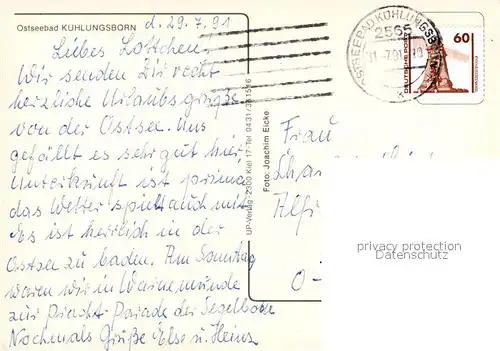 Ostseebad KÜHLUNGSBORN
d. 29.7.91
Liebes Lottchen.
Wir senden Dir recht
herzliche Urlaubsgrüße
von der Ostsee. Uns
gefällt es sehr gut hier
Unterkunft ist prima
das Wetter spielt auch mit
Es ist herrlich in der
Ostsee zu baden. Am Sonntag
waren wir in Warnemünde
zur Pracht-Parade der Segelboote
Nochmals Grüße Else u. Heinz
UP-Verlag 2300 Kiel 17 Tel 04 31/36 15 16
Foto: Joachim Eicke
OSTSEEBAD KÜHLUNGSBORN
2565
60
Frau
O-
privacy protection
VEHRENBERG.DE